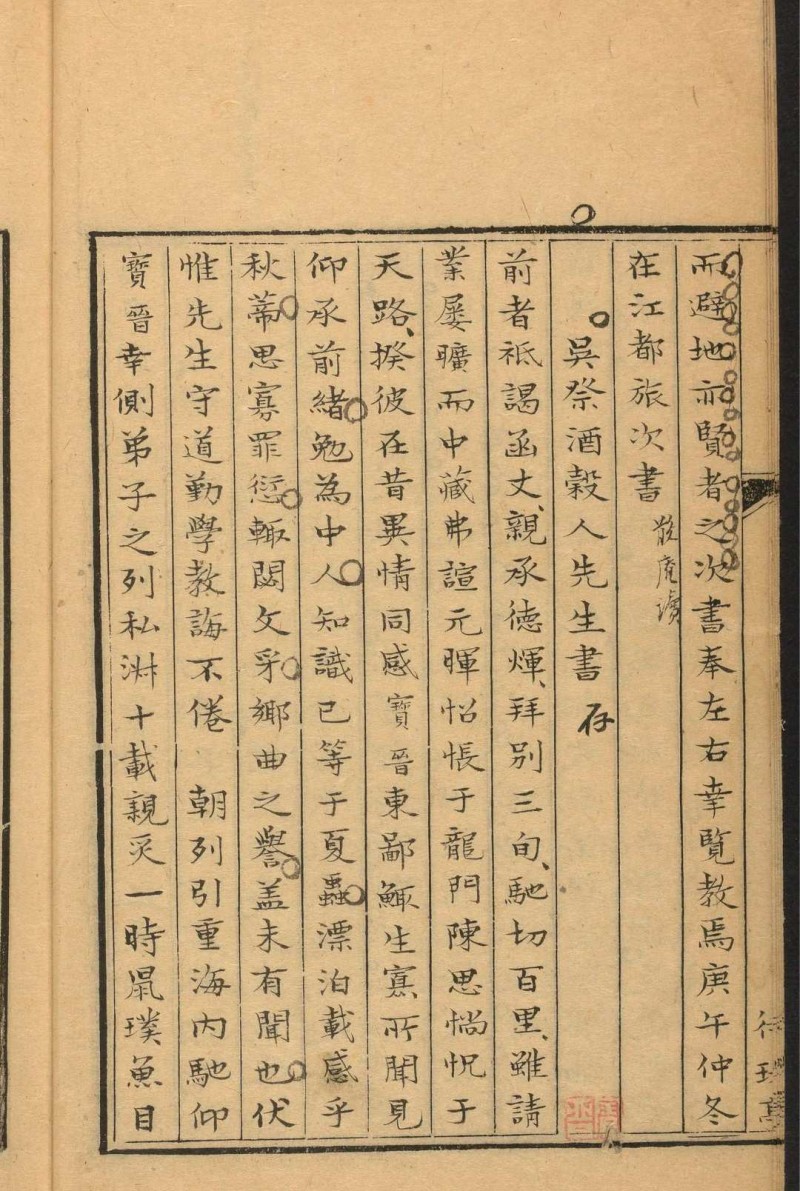 而避地亦賢者之次書奉左右幸覽教焉庚午仲冬
在江都旅次書
吳祭酒穀人先生書 存
前者祗謁函丈、親承德煇、拜别三旬、馳切百里、雖請
業屡曠而中藏弗諠元暉怊悵于龍門陳思惝怳于
天路、揆彼在昔異情同感寶晉東鄙鯫生寡所聞見
仰承前緒勉為中人知識已等于夏蟲漂泊載感乎
秋蒂思寡罪愆輒闕文乎鄉曲之譽盖未有聞也伏
惟先生守道勤學教誨不倦 朝列引重海内馳仰
寶晉幸側弟子之列私淑十載親炙一時鼠璞魚目